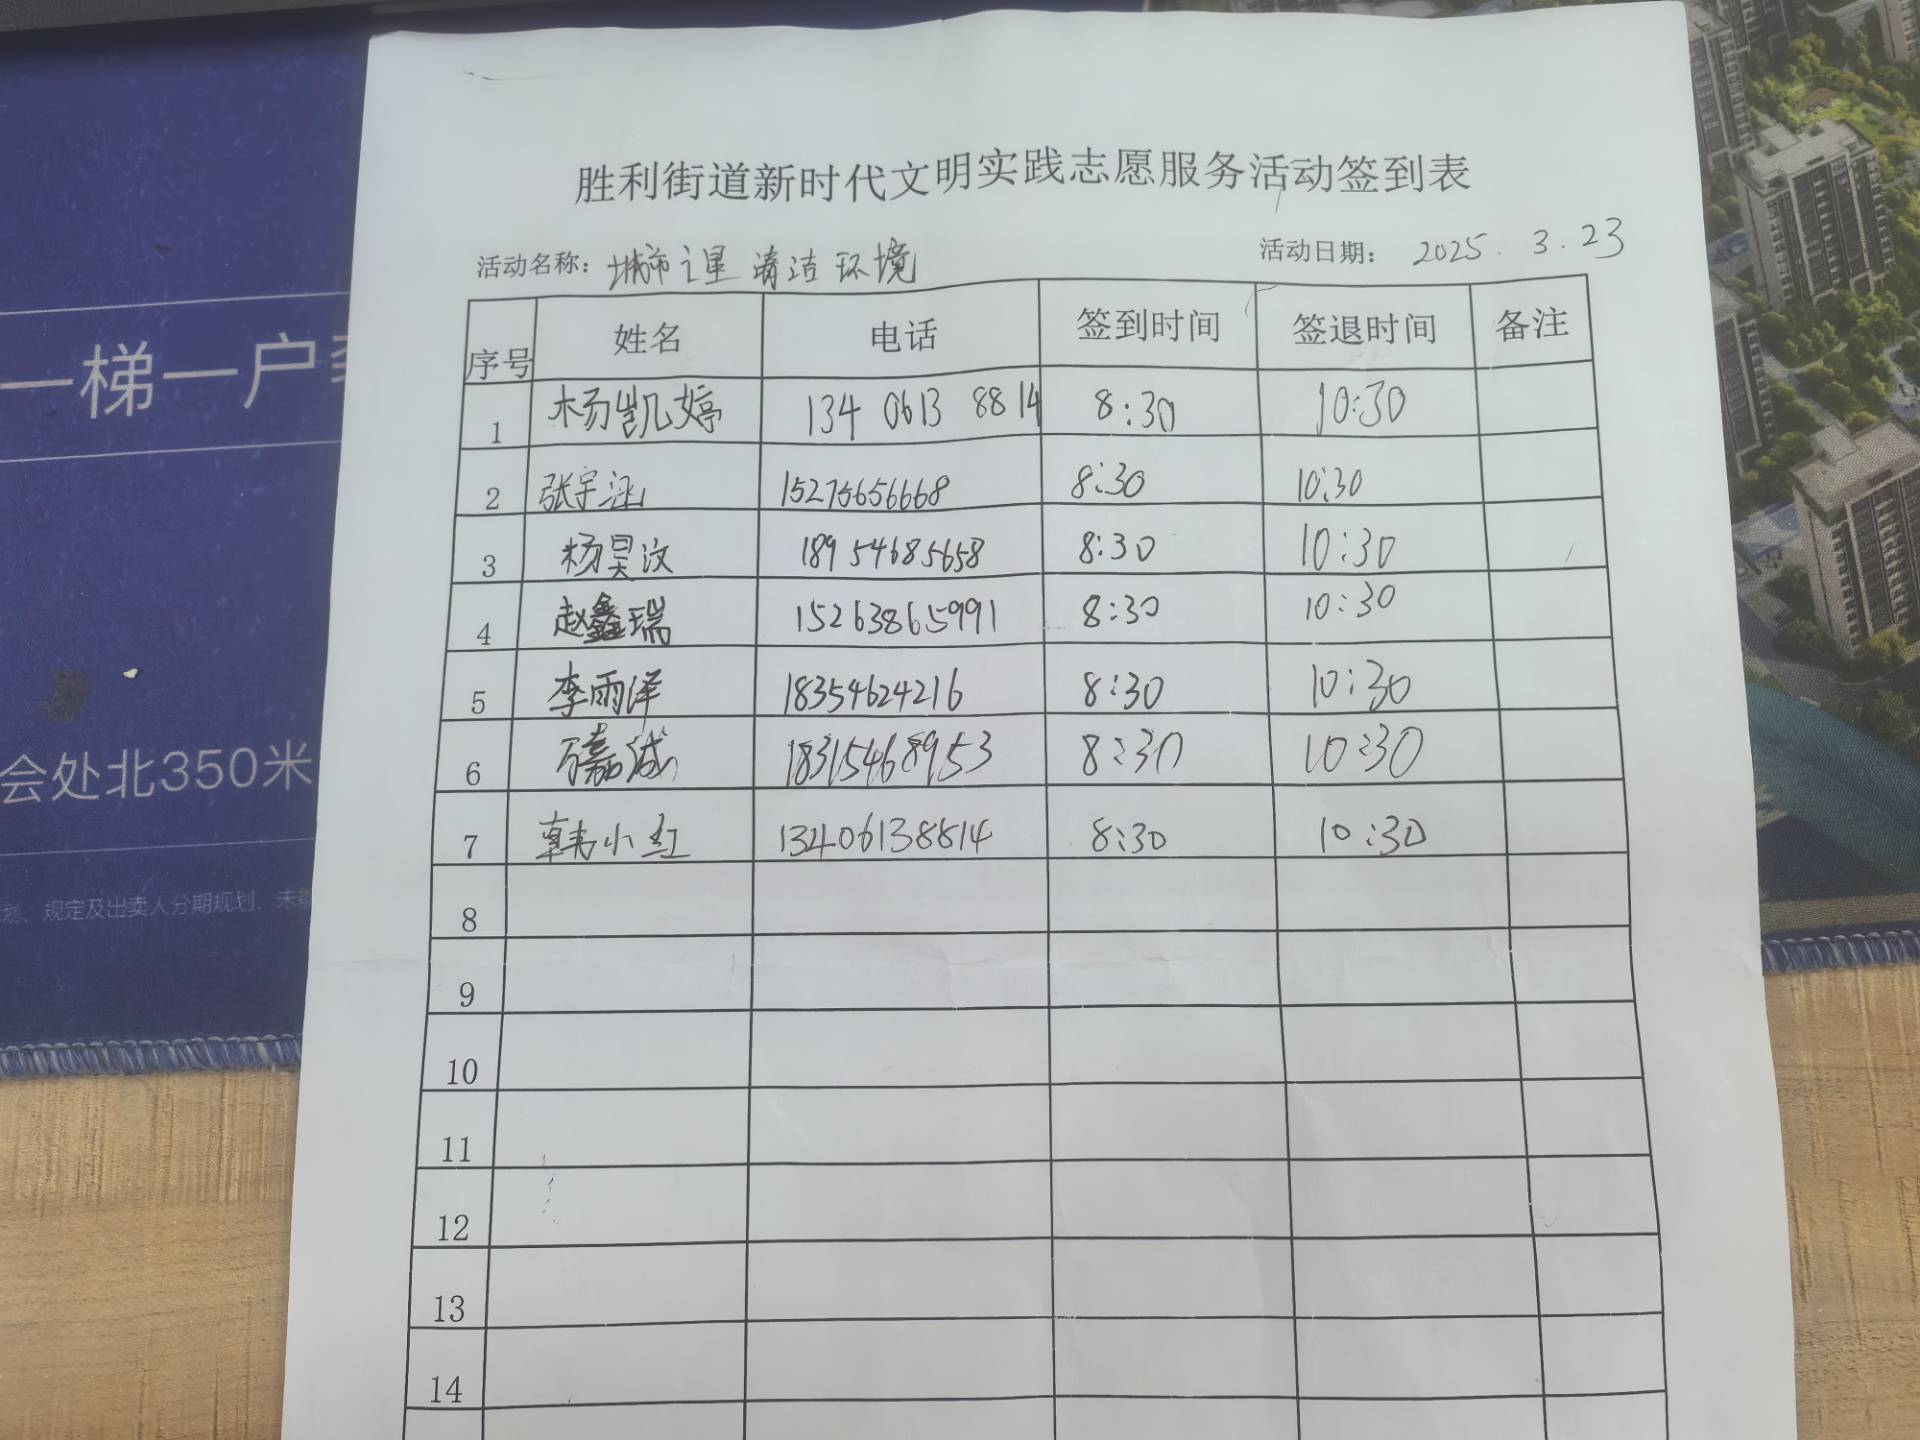 胜利街道新时代文明实践志愿服务活动签到表
活动名称：城市之星 清洁环境 活动日期： 2025.3.23
序号 姓名 电话 签到时间 签退时间 备注
1 杨凯婷 134 0613 8814 8:30 10:30
2 张宇涵 15275656668 8:30 10:30
3 杨昊汶 18954685658 8:30 10:30
4 赵鑫瑞 15263865991 8:30 10:30
5 李雨泽 18354624216 8:30 10:30
6 万嘉诚 18315468953 8:30 10:30
7 韩小红 13406138814 8:30 10:30
8
9
10
11
12
13
14
一梯一户
会处北350米
规定及出卖人分期规划、未能